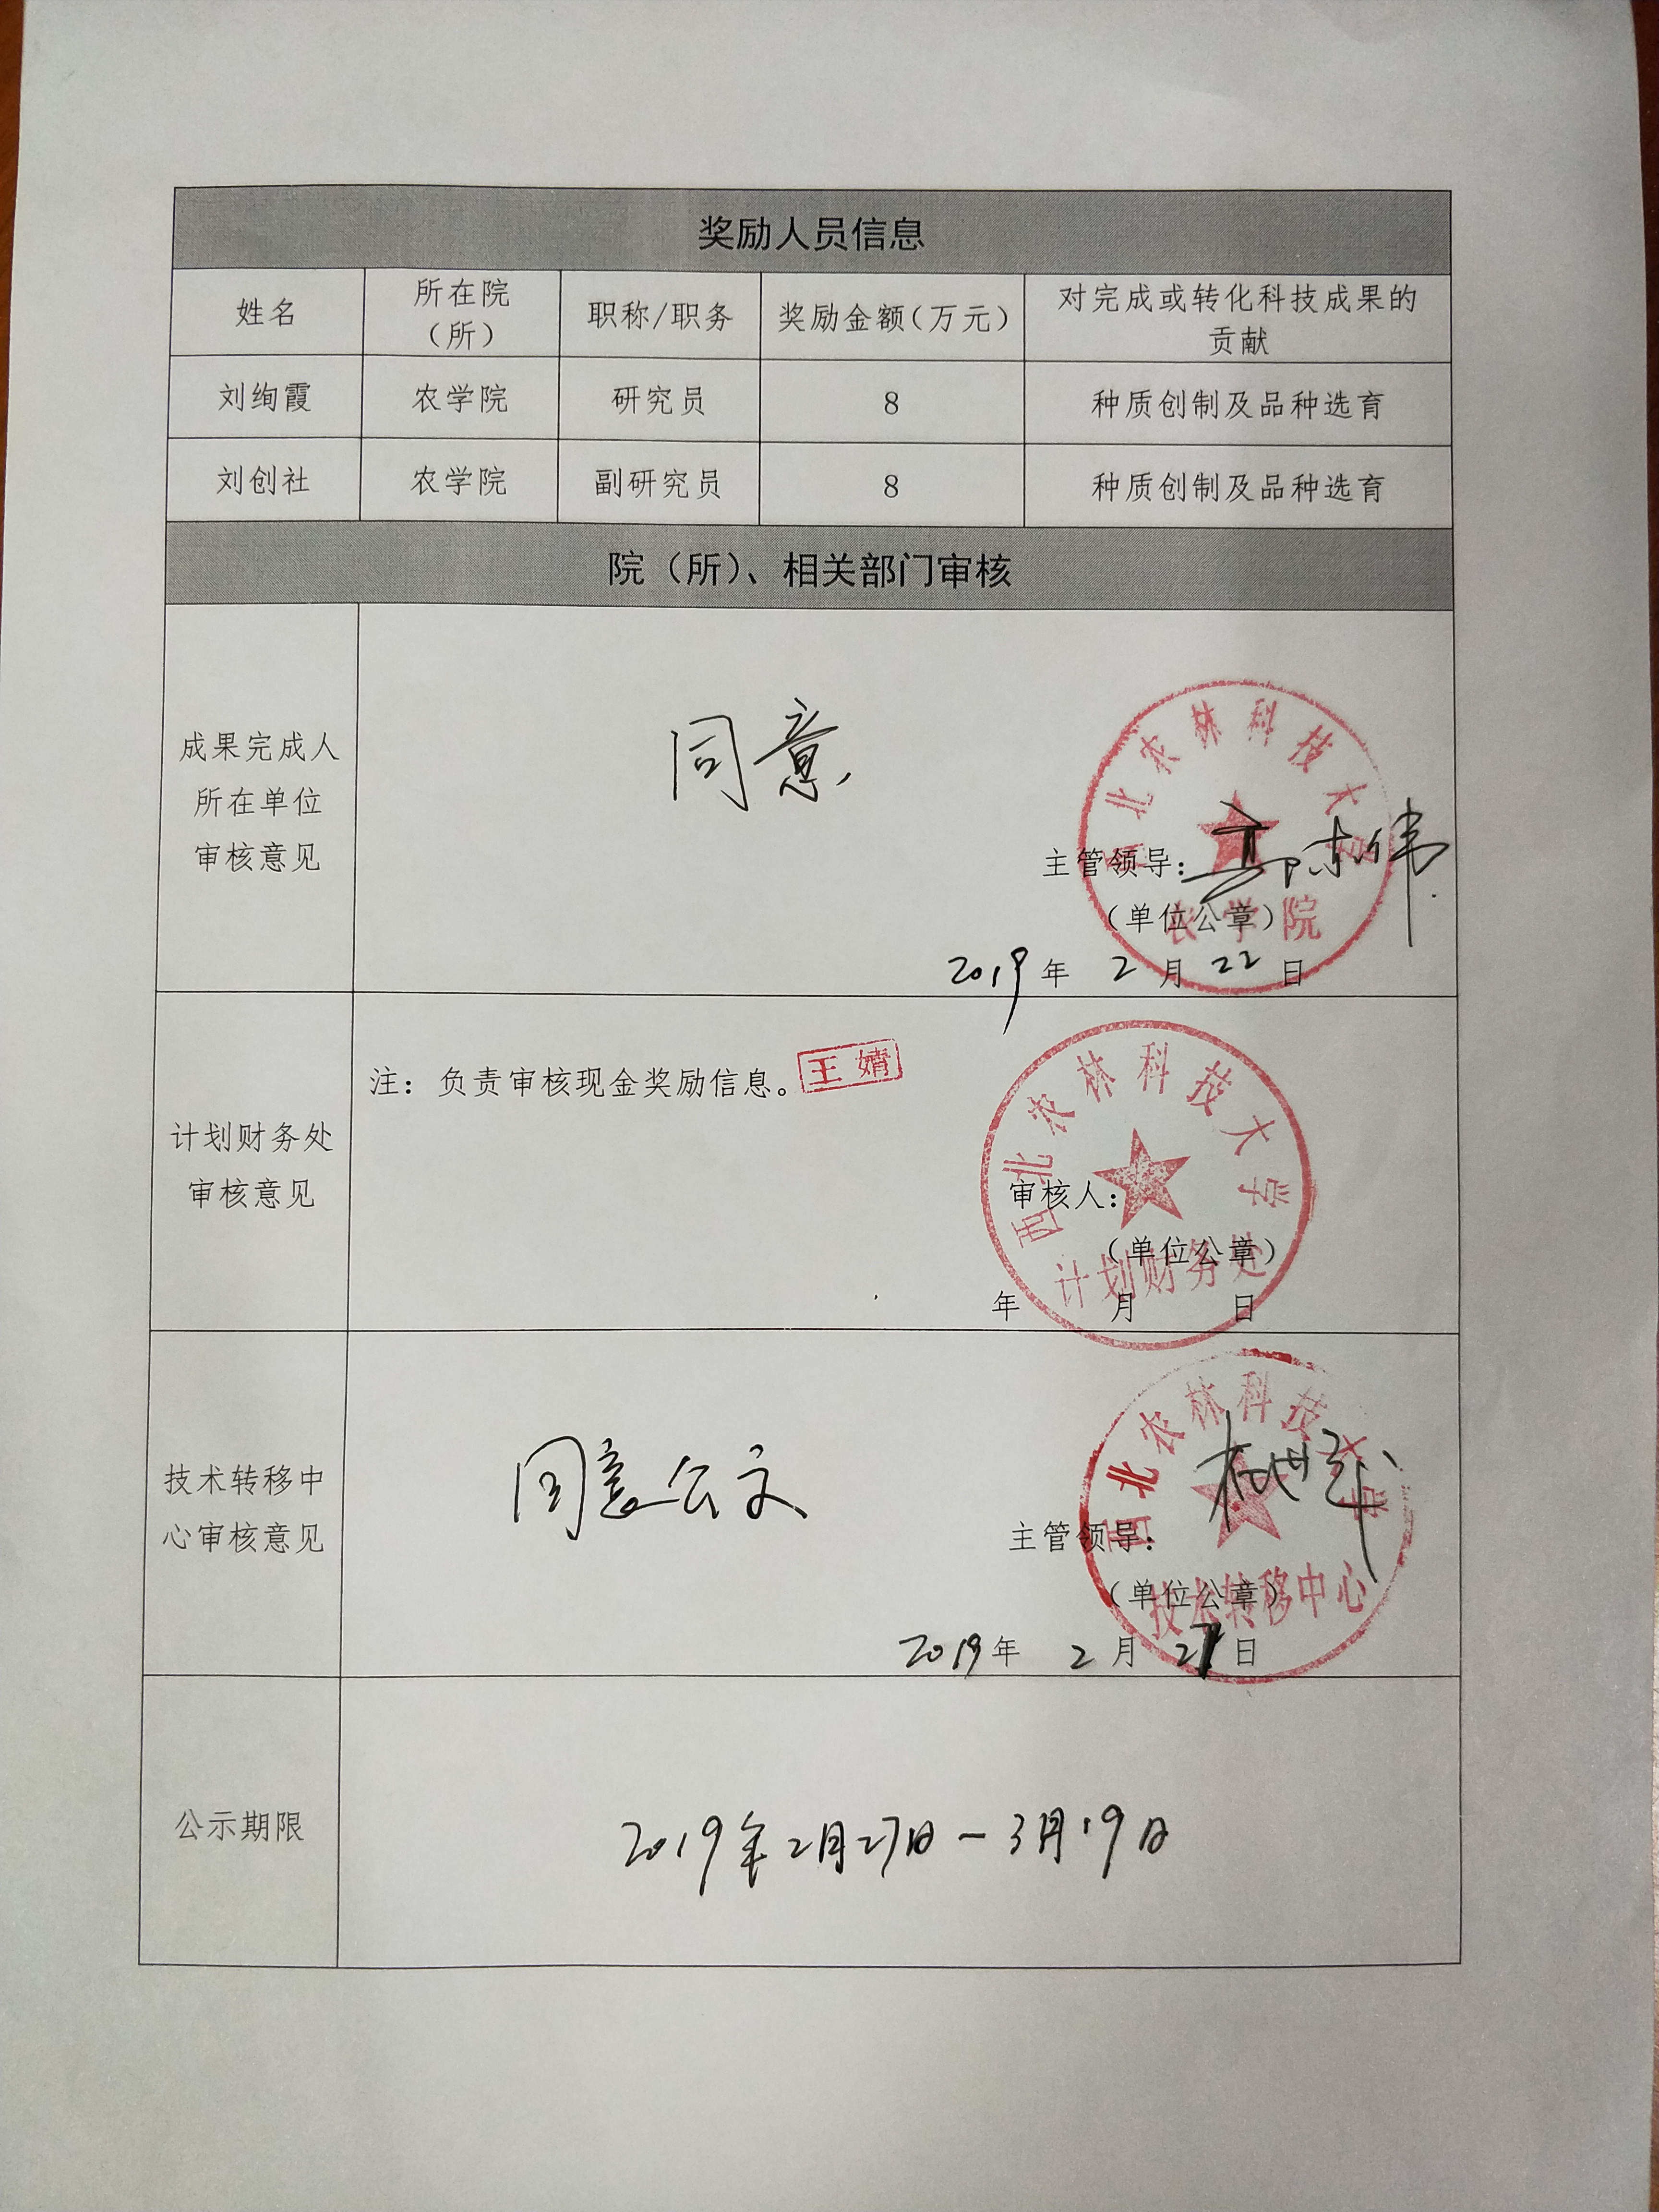 奖励人员信息
姓名 所在院（所） 职称/职务 奖励金额（万元） 对完成或转化科技成果的贡献
刘绚霞 农学院 研究员 8 种质创制及品种选育
刘创社 农学院 副研究员 8 种质创制及品种选育
院（所）、相关部门审核
成果完成人
所在单位
审核意见
同意
西北农林科技大学
农学院
主管领导：
（单位公章）
2019年 2月 22日
计划财务处
审核意见
注：负责审核现金奖励信息。
王婧
西北农林科技大学
计划财务处
审核人：
（单位公章）
年 月 日
技术转移中
心审核意见
同意公文
西北农林科技大学
技术转移中心
主管领导：
（单位公章）
2019年 2月 27日
公示期限
2019年2月27日-3月19日